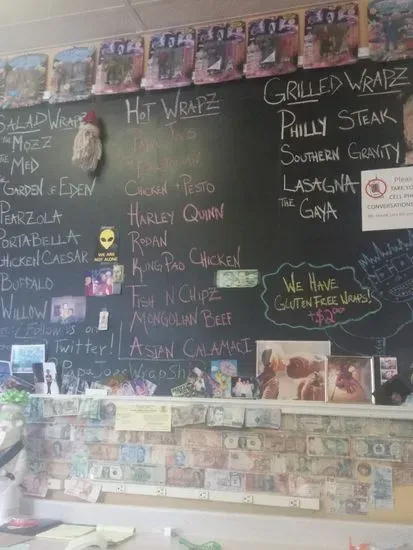 SALAD WRAPZ
THE MOZZ
THE MED
THE GARDEN OF EDEN
PEARZOLA
PORTABELLA
CHICKEN CAESAR
BUFFALO
WILLOW
FOLLOW US ON
TWITTER!
PAPAJOESWRAPSH
HOT WRAPZ
CHICKEN + PESTO
HARLEY QUINN
RODAN
KUNG PAO CHICKEN
FISH N CHIPZ
MONGOLIAN BEEF
ASIAN CALAMARI
GRILLED WRAPZ
PHILLY STEAK
SOUTHERN GRAVITY
LASAGNA
THE GAYA
Please
TAKE YOUR
CELL PHONE
CONVERSATIONS
WE ARE
NOT ALONE
WE HAVE
GLUTEN FREE WRAPS!
+$2.00